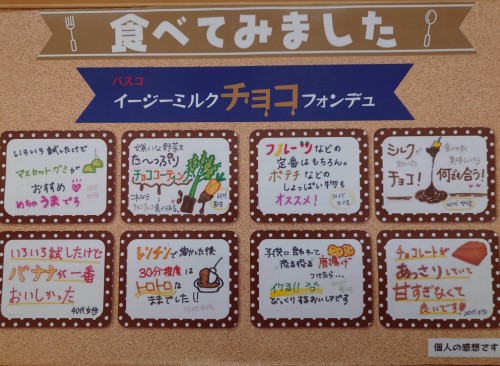 食べてみました
パスコ
イージーミルクチョコフォンデュ
いろいろ試したけど
マスカットグミが
おすすめ
めちゃうまでろ
嫌いな野菜を
たーっぷり
チョココーティング
これなら
食べられる。
フルーツなどの
定番はもちろん
ポテチなどの
しょっぱい物も
オススメ!
ミルク
チョコ!
何でも合う!
いろいろ試したけど
バナナが一番
おいしかった
40代女性
レンチンで溶かした後
30分程度は
トロトロな
ままでした!!
子供に
恐る恐る唐揚げ
つけたら…
イケる!!
びっくりするおいしさです
チョコレートが
あっさりしていて
甘すぎなくて
良いです
20代女性
個人の感想です